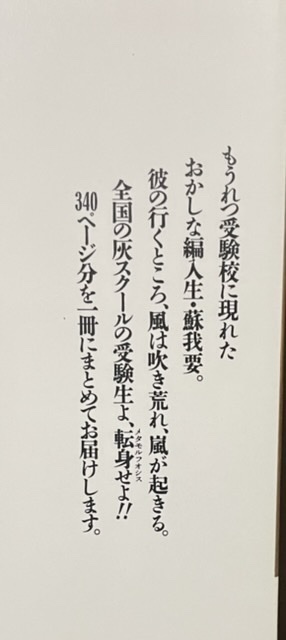 もうれつ受験校に現れた
おかしな編入生・蘇我要。
彼の行くところ、風は吹き荒れ、嵐が起きる。
全国の灰スクールの受験生よ、転身せよ!!
メタモルフオシス
340ページ分を一冊にまとめてお届けします。